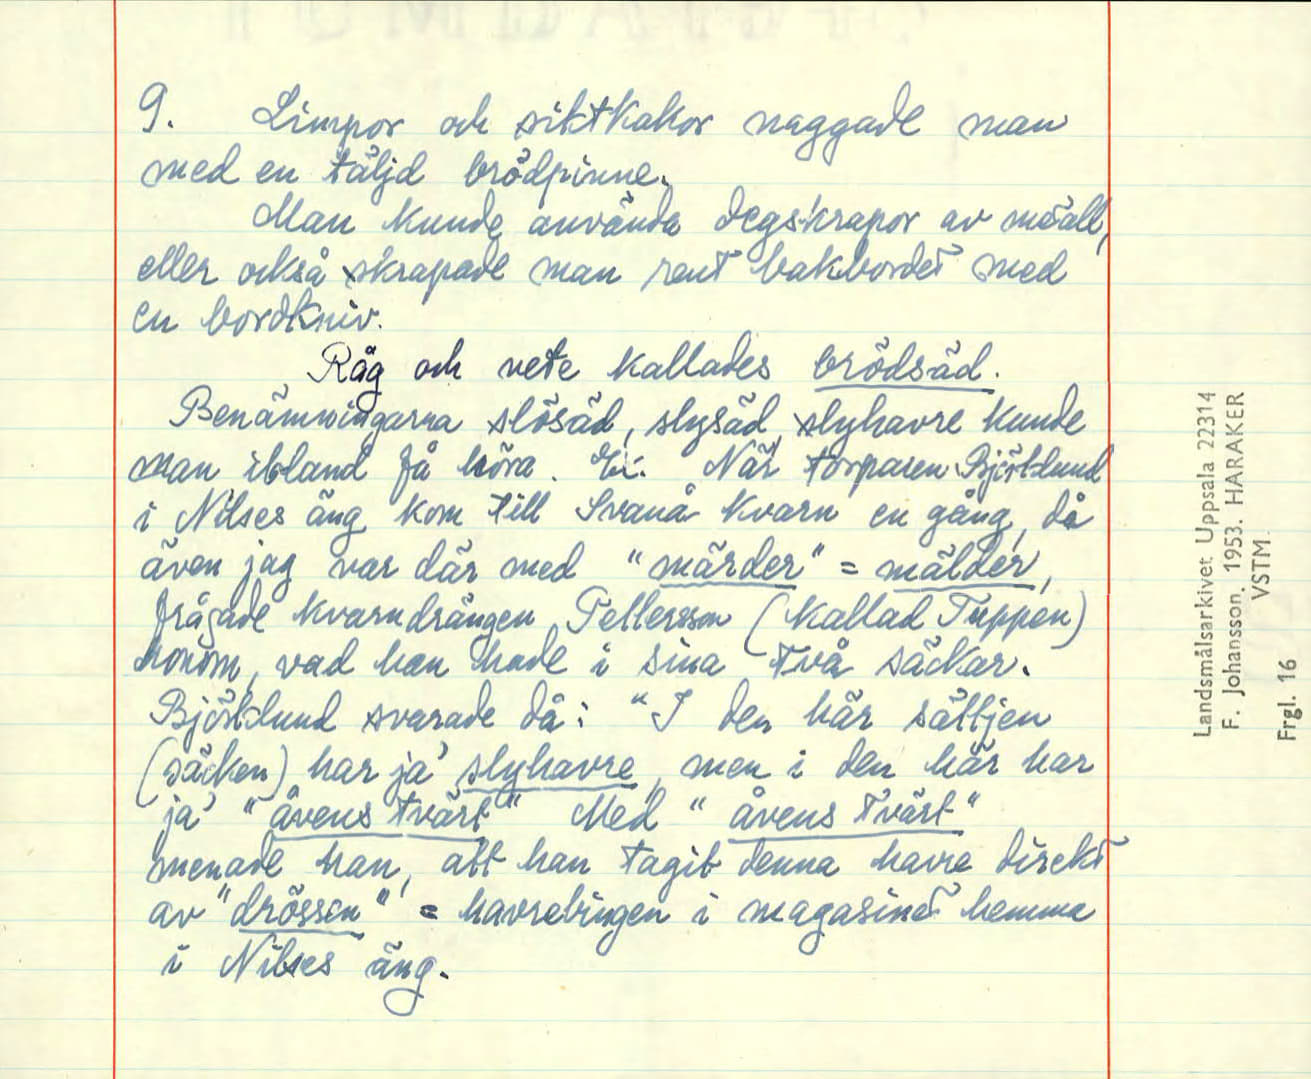 9. Limpor och siktkakor naggade man
med en täljd brödpinne.
Man kunde använda degskrapor av metall,
eller också skrapade man rent bakbordet med
en bordkniv.
Råg och vete kallades brödsäd.
Benämningarna slösäd, slysäd, slyhavre kunde
man ibland få höra. Ex. När torparen Björklund
i Nilses äng kom till Svanå kvarn en gång, då
även jag var där med "märder" = mälder,
frågade kvarndrängen Pettersson (kallad Tuppen)
honom, vad han hade i sina två säckar.
Björklund svarade då: "I den här sättjen
(säcken) har ja' slyhavre, men i den här har
ja' "åvens tvärt" Med "åvens tvärt"
menade han, att han tagit denna havre direkt
av "drössen" = havrebingen i magasinet hemma
i Nilses äng.
Landsmålsarkivet Uppsala 22314
F. Johansson. 1953. HARAKER
VSTM.
Frgl. 16